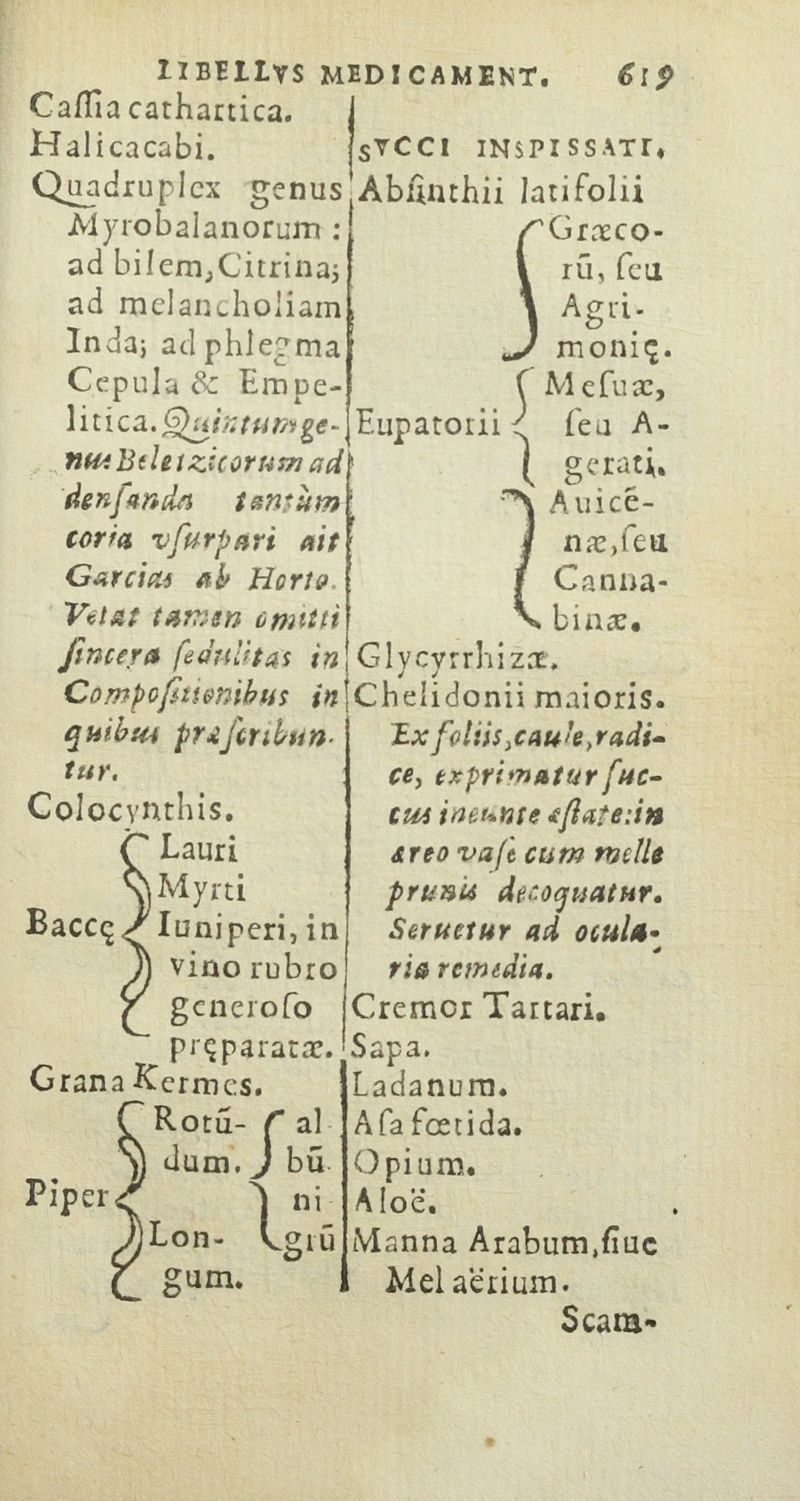 LIBELLVS MEDICAMENT. 619
Caſſia cathartica.
Halicacabi.
Quadruplex genus
Myrobalanorum :
ad bilem, Citrina;
ad melancholiam
Inda; ad phlegma
Cepula & Empe-
litica. Quintum ge-
nus Beleizicorum ad
denſanda tantùm
coria vſurpari ait
Garcias ab Horto.
Vetat tamen omitti
ſincera ſedulitas in
Compoſitionibus in
quibus præſcribun-
tur.
Colocynthis.
Baccę
Lauri
Myrti
Iuniperi, in
vino rubro
generoſo
pręparatæ.
Grana Kermes.
Piper
Rotū-
dum.
Lon-
gum.
al
bū
ni
grū
SVCCI INSPISSATI.
Abſinthii latifolii
Eupatorii
Græco-
rū, ſeu
Agri-
monię.
Meſuæ,
ſeu A-
gerati.
Auicē-
næ, ſeu
Canna-
binæ.
Glycyrrhizæ.
Chelidonii maioris.
Ex foliis, caule, radi-
ce, exprimatur ſuc-
cus ineunte æſtate: in
æreo vaſe cum melle
prunis decoquatur.
Seruetur ad ocula-
ria remedia.
Cremor Tartari.
Sapa.
Ladanum.
Aſa fœtida.
Opium.
Aloë.
Manna Arabum, ſiue
Mel aërium.
Scam-